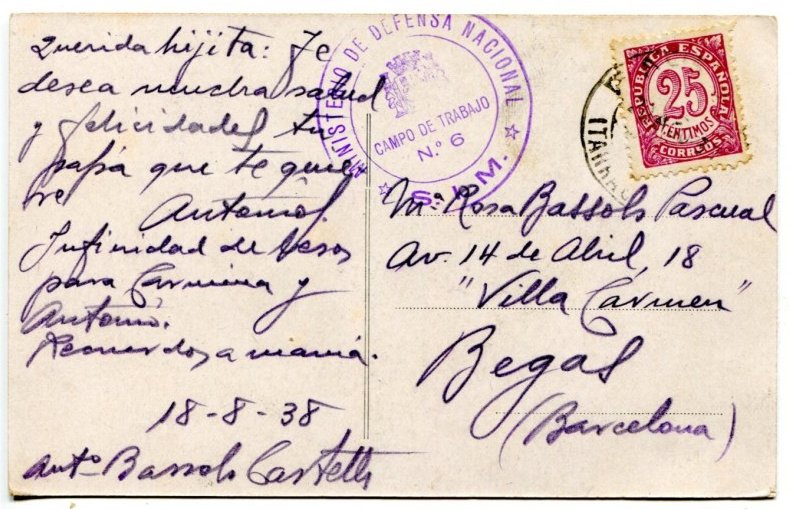 Querida hijita: Te
desea mucha salud
y felicidades tu
papa que te quie-
re Antonio.
Infinidad de besos
para Carmina y
Antonio.
Recuerdos a mamá.
18-8-38
Antº Bassols Castells
MINISTERIO DE DEFENSA NACIONAL
CAMPO DE TRABAJO
N.º 6
S.I.M.
REPUBLICA ESPAÑOLA
25
CENTIMOS
CORREOS
Mª Rosa Bassols Pascual
Av. 14 de Abril, 18
"Villa Carmen"
Begas
(Barcelona)